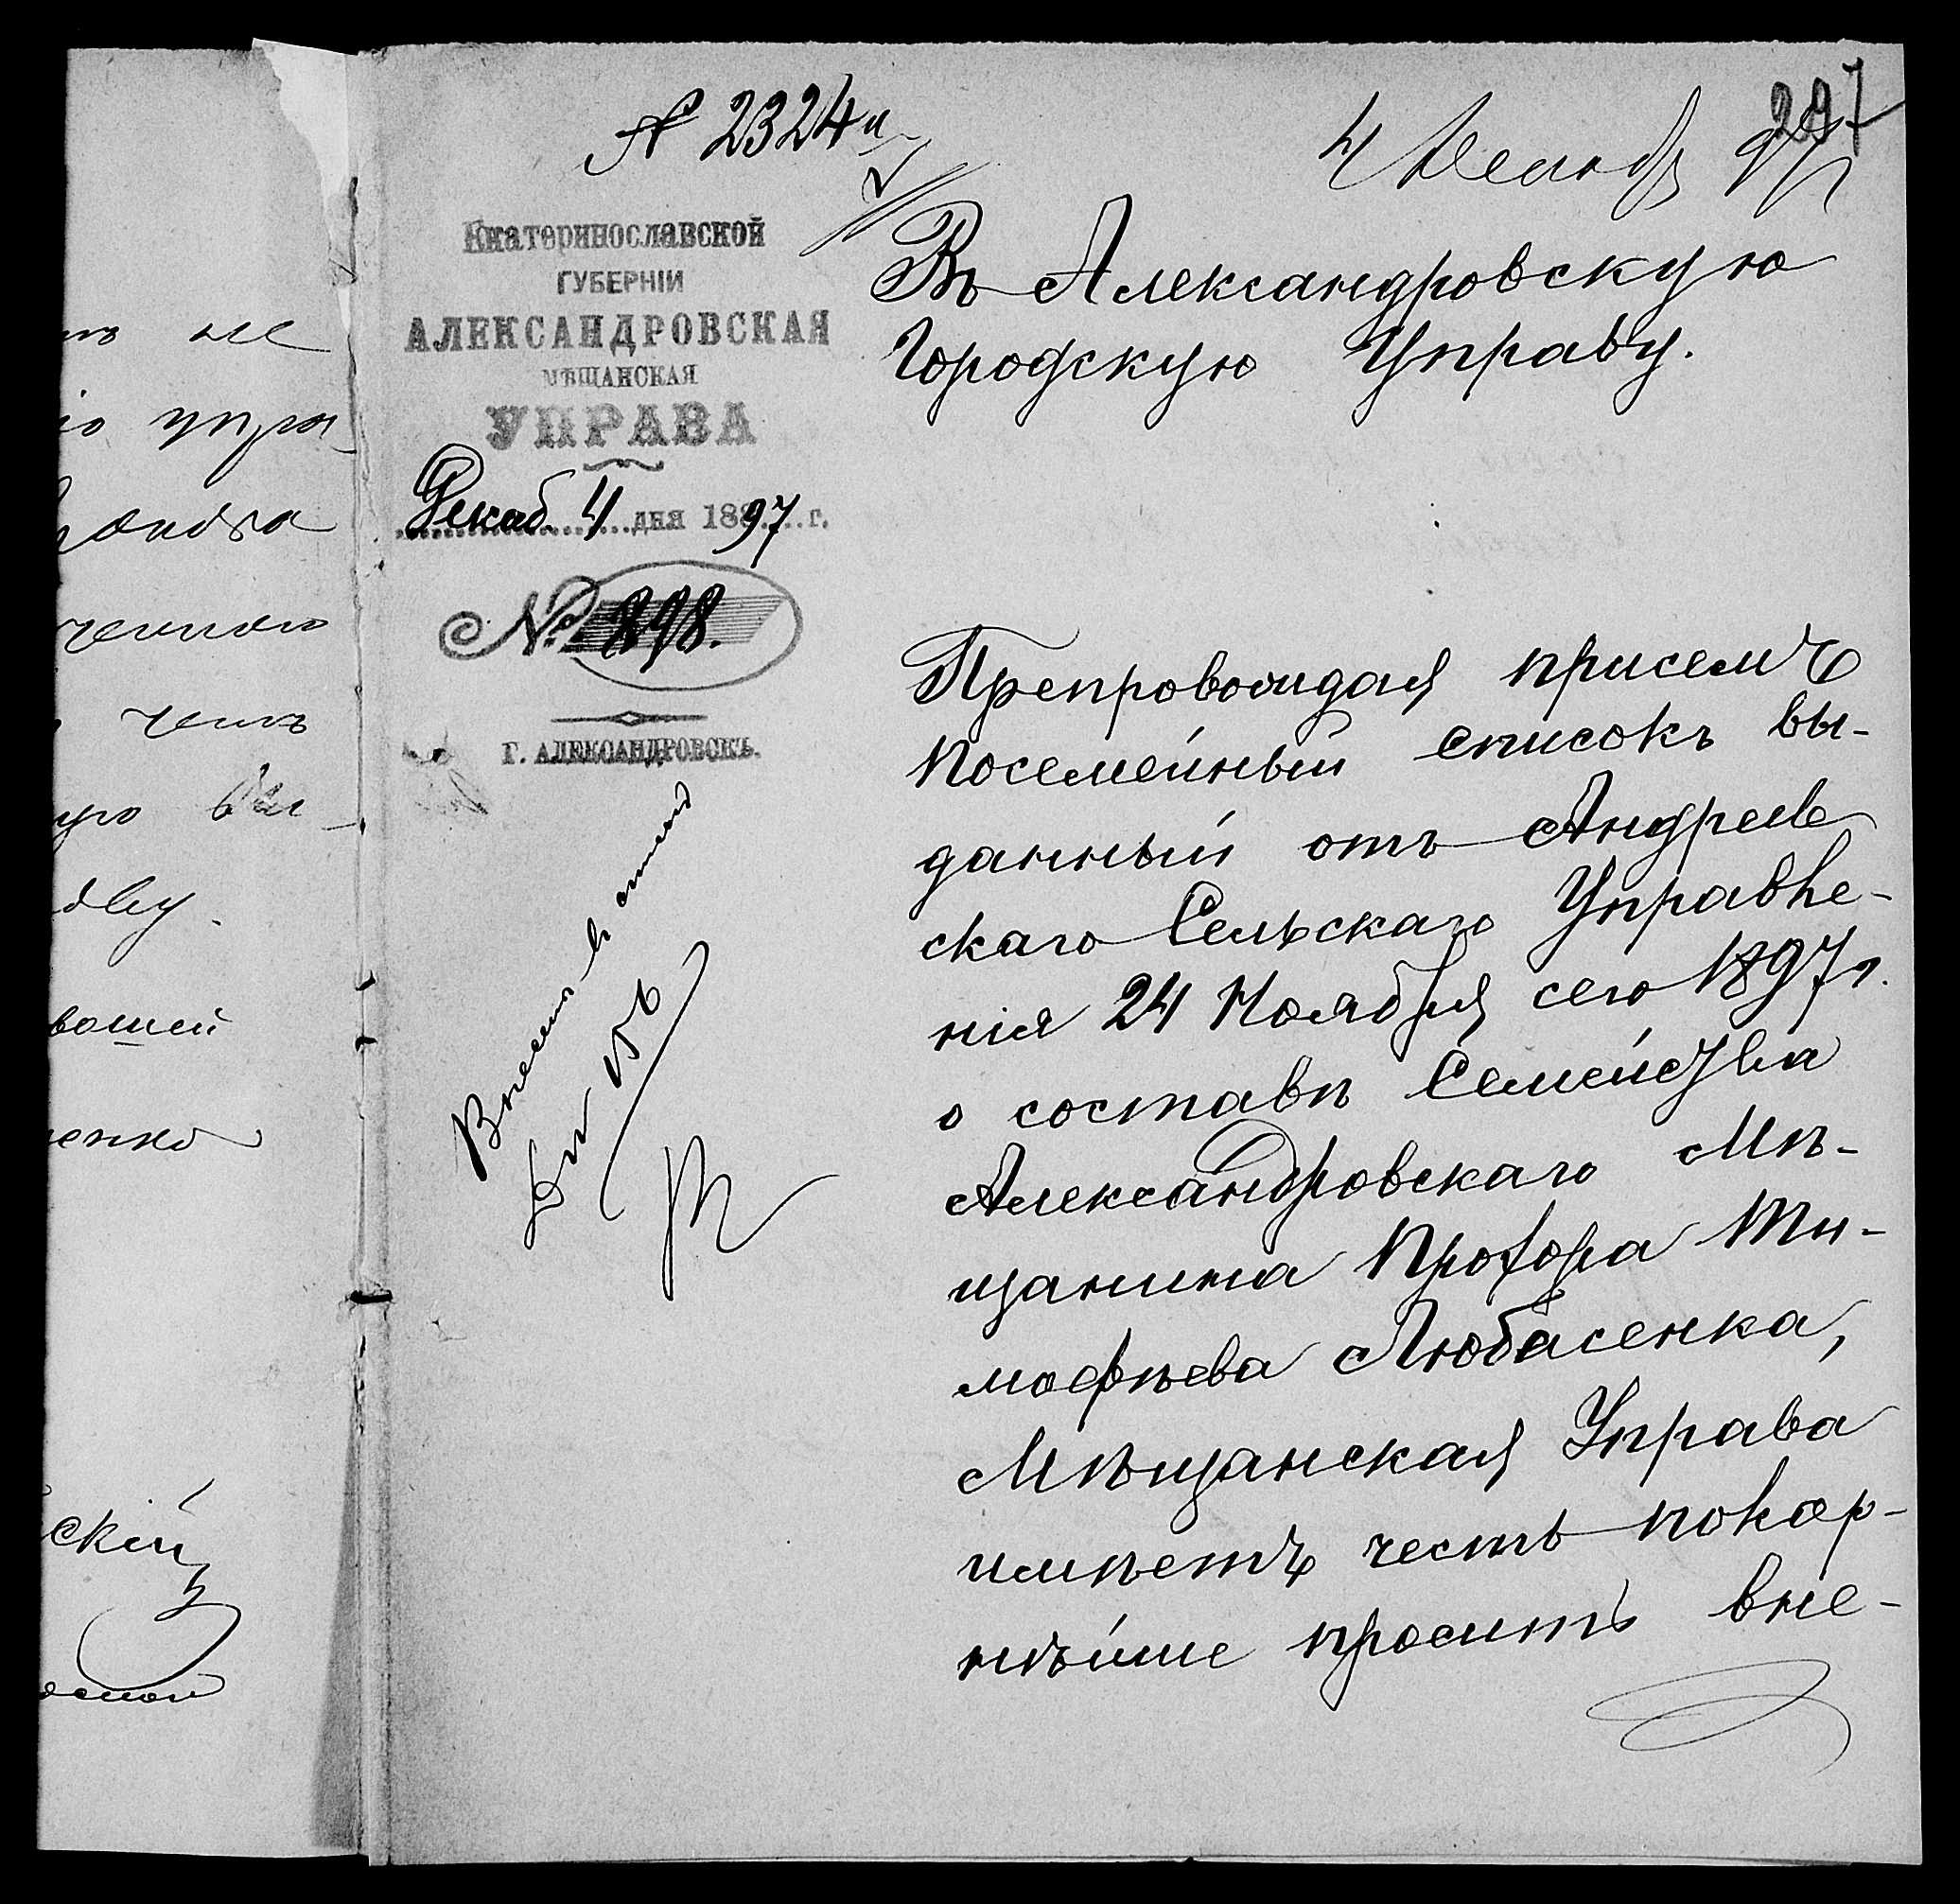 № 2324
297
4 Декабр 97
Екатеринославской
ГУБЕРНІИ
АЛЕКСАНДРОВСКАЯ
МѢЩАНСКАЯ
УПРАВА
Декаб. 4 дня 1897 г.
№ 898.
Г. АЛЕКСАНДРОВСКЪ.
Въ Александровскую
Городскую Управу.
Препровождая присемъ
посемейный списокъ вы-
данный отъ Андреев
скаго Сельскаго Управле-
нія 24 Ноября сего 1897 г.
о составѣ Семейства
Александровскаго Мѣ-
щанина Прохора Ти-
мофѣева Любасенка,
Мѣщанская Управа
имѣетъ честь покор-
нѣйше просить вне-
ъ не
упра
ченною
чемъ
вашей
енко
скій